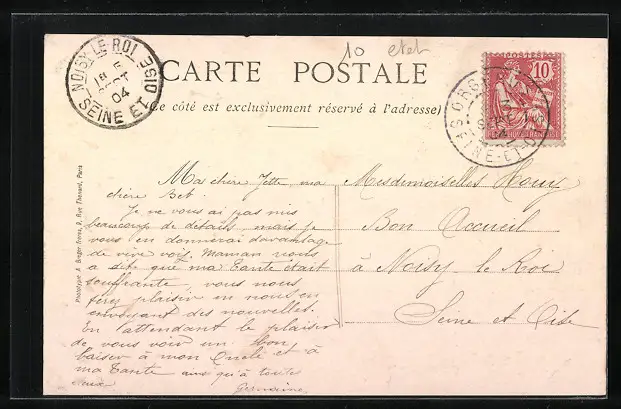 NOISY-LE-ROI
SEINE ET OISE
5
18
SEPT
04
10
CARTE POSTALE
Ce côté est exclusivement réservé à l'adresse
10
ORSAY
SEINE-ET-O
Phototypie A. Breger frères, 9, Rue Thénard, Paris
Ma chère Jette, ma
chère Bet.
Je ne vous ai pas mis
beaucoup de détails, mais je
vous en donnerai davantage
de vive voix. Maman nous
a dit que ma tante était
souffrante, vous nous
ferez plaisir en nous en
envoyant des nouvelles.
En attendant le plaisir
de vous voir un bon
baiser à mon Oncle et à
ma tante ainsi qu'à toutes
deux
Germaine
Mesdemoiselles
Bon Accueil
à Noisy le Roi
Seine et Oise